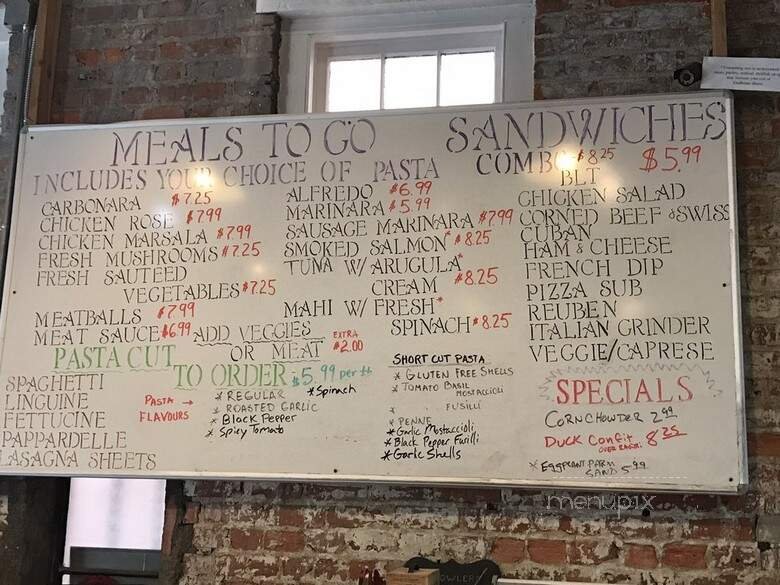 MEALS TO GO
INCLUDES YOUR CHOICE OF PASTA
CARBONARA $7.25
CHICKEN ROSE $7.99
CHICKEN MARSALA $7.99
FRESH MUSHROOMS $7.25
FRESH SAUTEED
VEGETABLES $7.25
MEATBALLS $7.99
MEAT SAUCE $6.99
ALFREDO $6.99
MARINARA $5.99
SAUSAGE MARINARA $7.99
SMOKED SALMON* $8.25
TUNA W/ ARUGULA*
CREAM $8.25
MAHI W/ FRESH*
SPINACH $8.25
ADD VEGGIES
OR MEAT EXTRA $2.00
SANDWICHES
COMBO $8.25 $5.99
BLT
CHICKEN SALAD
CORNED BEEF & SWISS
CUBAN
HAM & CHEESE
FRENCH DIP
PIZZA SUB
REUBEN
ITALIAN GRINDER
VEGGIE/CAPRESE
PASTA CUT
TO ORDER $5.99 per #
SPAGHETTI
LINGUINE
FETTUCINE
PAPPARDELLE
LASAGNA SHEETS
PASTA →
FLAVOURS
* REGULAR
* ROASTED GARLIC
* Black Pepper
* Spicy Tomato
* Spinach
SHORT CUT PASTA
* GLUTEN FREE SHELLS
* TOMATO BASIL
MOSTACCIOLI
* FUSILLI
* PENNE
* Garlic Mostaccioli
* Black Pepper Fusilli
* Garlic Shells
SPECIALS
CORN CHOWDER 2.99
DUCK Confit 8.25
* EGGPLANT PARM
SAND 5.99
menupix